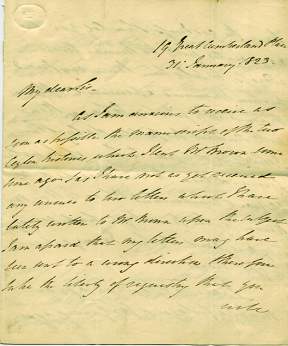 19 Great Cumberland Place
31st January 1823
My dear Sir
As I am anxious to receive as
soon as possible the manuscripts of the two
Ceylon Histories which I lent Mr Brown some
time ago & as I have not as yet received
any answer to two letters which I have
lately written to Mr Brown upon the subject
I am afraid that my letters may have
been sent to a wrong direction & therefore
take the liberty of requesting that you